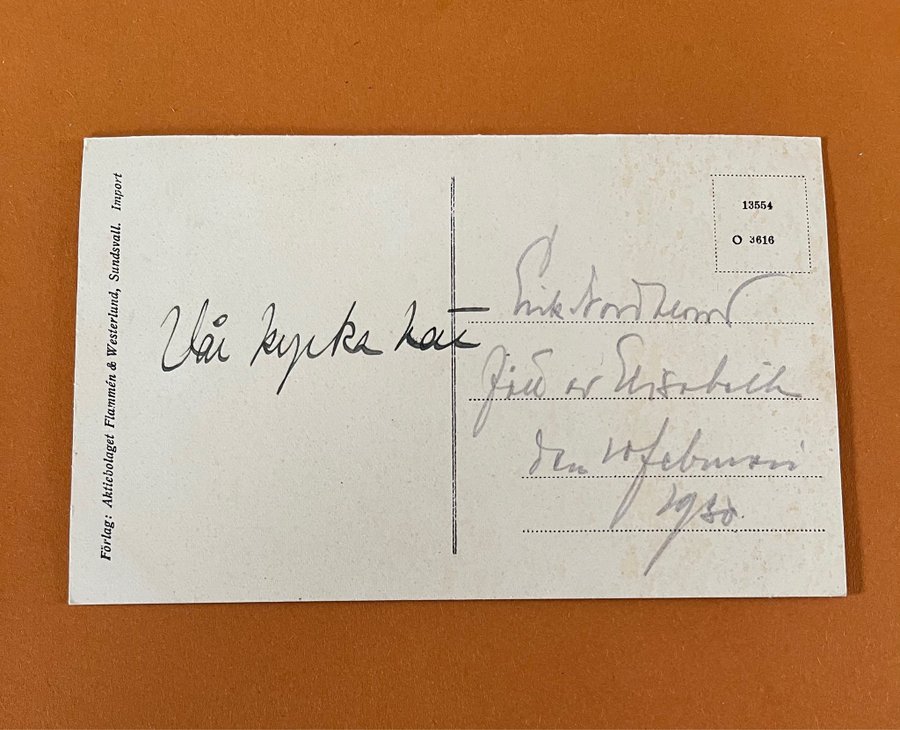 Förlag: Aktiebolaget Flammén & Westerlund, Sundsvall. Import
13554
O 3616
Vår kyrka
Erik
av Elisabeth
den 10 februari